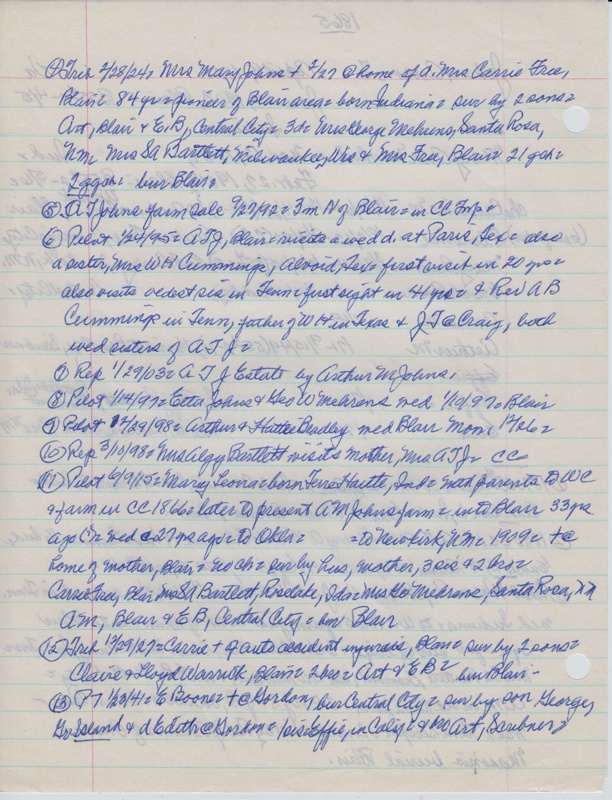 1865
④ Trib 2/28/24= Mrs Mary Johns + 2/27 @ home of d. Mrs Carrie Free,
Blair= 84 yr= pioneer of Blair area= born Indiana= sur by 2 sons=
Art, Blair & E.B, Central City= 3d= Mrs George Mehrens, Santa Rosa,
N.M. Mrs SA Bartlett, Milwaukee, Wis & Mrs Free, Blair= 21 gch=
2ggch= bur Blair=
⑤ A T Johns farm sale 9/27/92= 3 m N of Blair= in CC Twp=
⑥ Pilot 1/24/95= ATJ, Blair= visits a wed d. at Paris, Tex= also
a sister, Mrs W H Cummings, Alvoid, Tex= first visit in 20 yrs=
also visits oldest sis in Tenn= first sight in 41 yrs= & Rev A B
Cummings in Tenn, father of W H in Texas & J T @ Craig, both
wed sisters of A T J=
⑦ Rep 1/29/03= A T J Estate by Arthur M Johns,
⑧ Pilot 1/14/97= Etta Johns & Geo W Mehrens wed 1/10/97= Blair
⑨ Pilot 12/29/98= Arthur & Hattie Bradley wed Blair Mon, 12/26=
⑩ Rep 3/10/98= Mrs Algy Bartlett visits mother, Mrs A T J= CC
⑪ Pilot 6/9/15= Mary Leona= born Terre Haute, Ind= with parents to WC
& farm in CC 1866= later to present A M Johns farm= into Blair 33 yrs
ago = wed c 27 yrs ago= to Okla= =to Newkirk, N.M= 1909= +@
home of mother, Blair= no ch= sur by hus, mother, 3 sis & 2 bro=
Carrie Free, Blair Mrs SA Bartlett, Ida= Mrs Geo Mehrens, Santa Rosa, N.M
A.M, Blair & E B, Central City= bur Blair
⑫ Trib 12/29/27= Carrie + of auto accident injuries, Blair= sur by 2 sons=
Claire & Lloyd Warrick, Blair= 2 bro= Art & E B= bur Blair-
⑬ PT 1/23/41= E Boone= +@ Gordon, bur Central City= sur by son George,
Gr Island & d Edith @ Gordon= sis Effie, in Calif= & bro Art, Scribner=